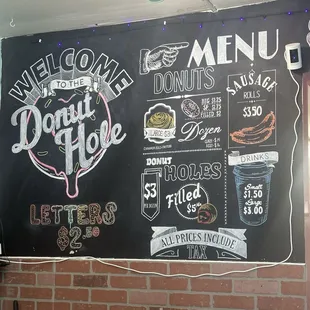 WELCOME
TO THE
Donut
Hole
LETTERS
$2.50
MENU
DONUTS
Dozen
DONUT
HOLES
$3
Filled
$5
SAUSAGE
ROLLS
$3.50
DRINKS
Small
$1.50
Large
$3.00
ALL PRICES INCLUDE
TAX